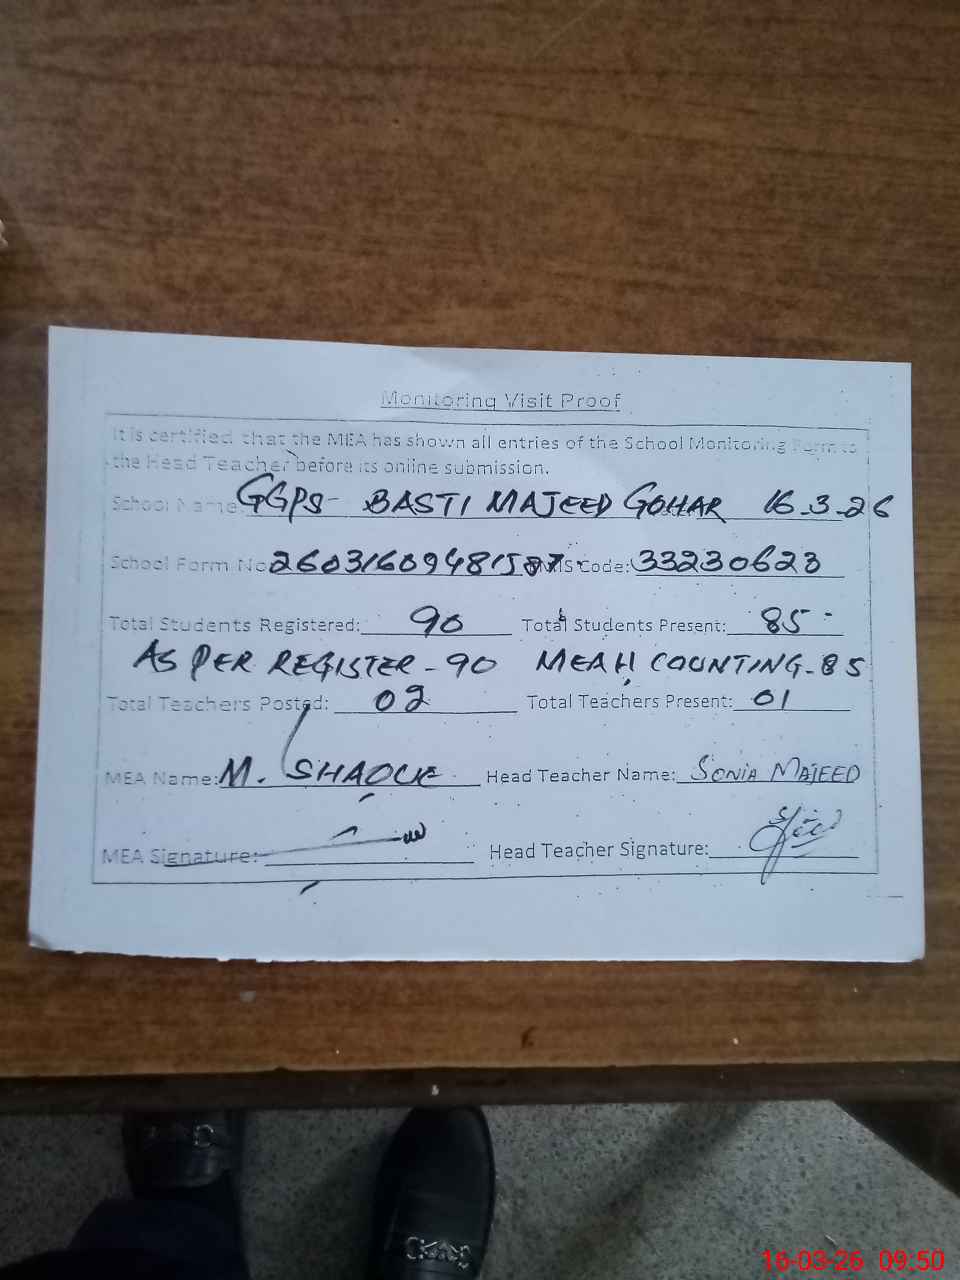 Monitoring Visit Proof
It is certified that the MEA has shown all entries of the School Monitoring Form to
the Head Teacher before its online submission.
School Name: GGPS- BASTI MAJEED GOHAR 16-3-26
School Form No: Code: 33230623
Total Students Registered: 90 Total Students Present: 85
AS PER REGISTER-90 MEA H COUNTING-85
Total Teachers Posted: 02 Total Teachers Present: 01
MEA Name: M. Head Teacher Name: SONIA MAJEED
MEA Signature: Head Teacher Signature:
16-03-26 09:50